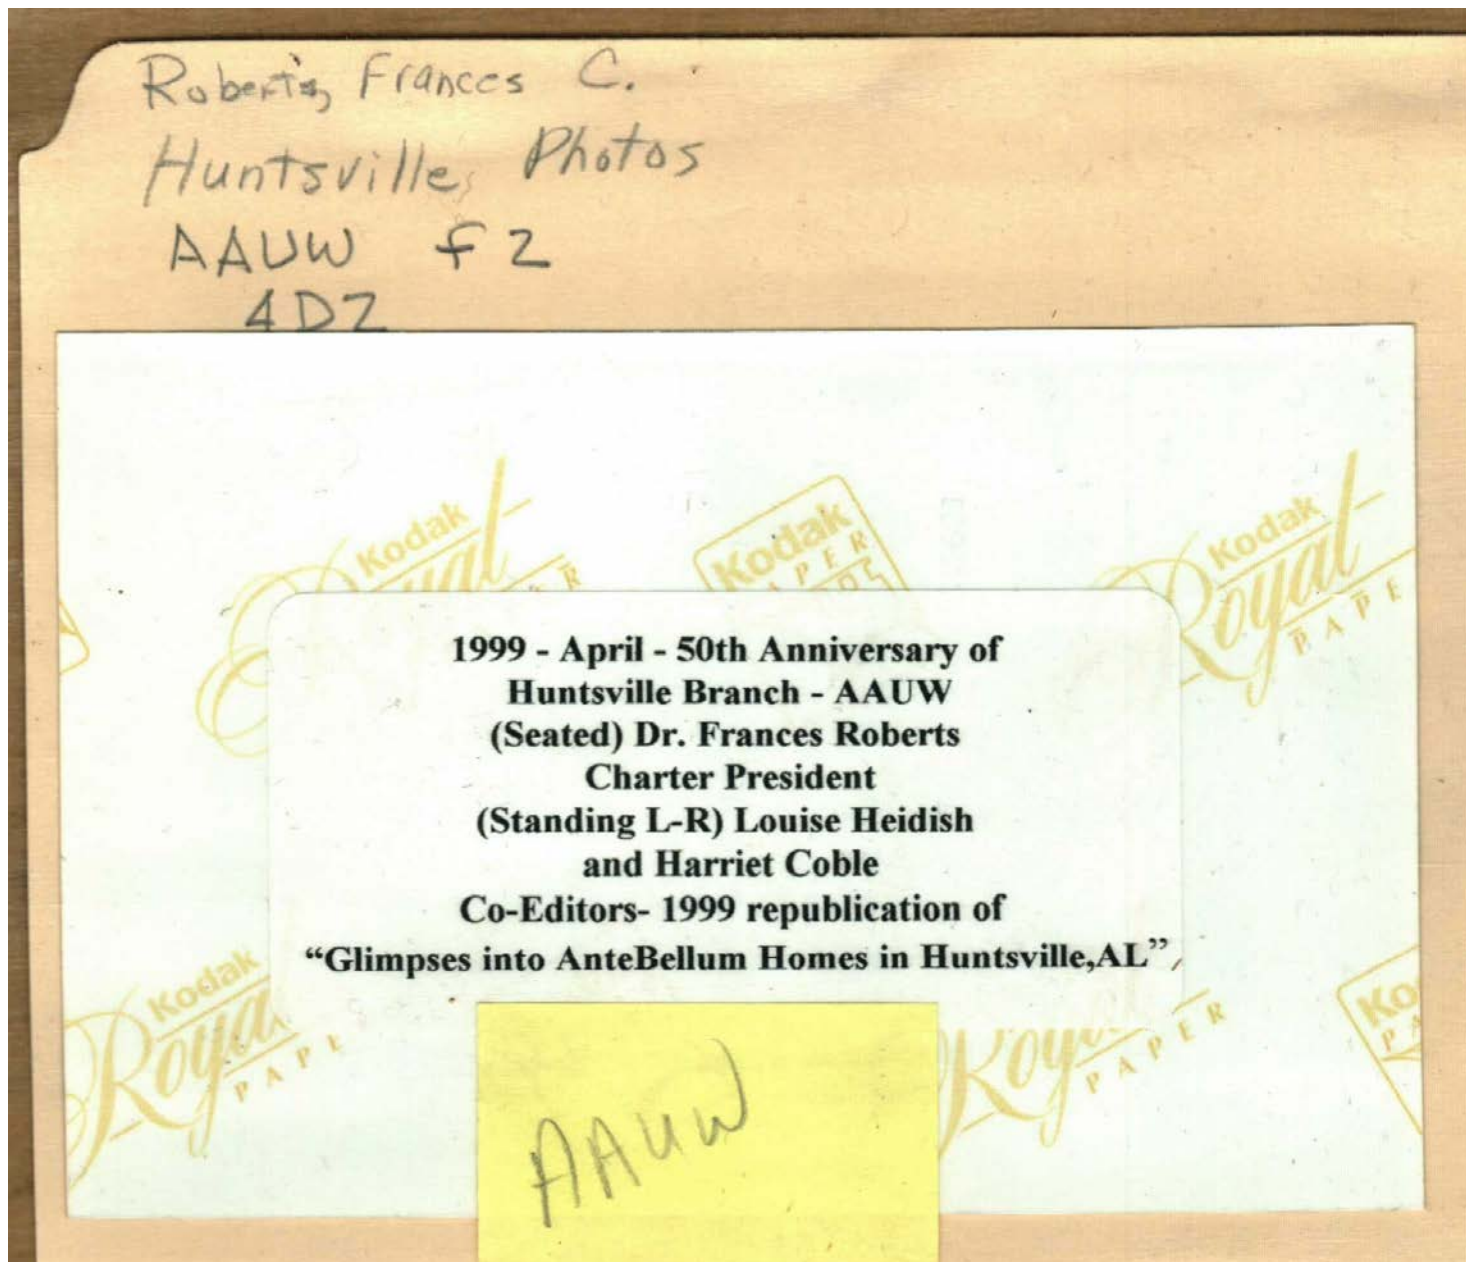 Roberts, Frances C.
Huntsville, Photos
AAUW f2
4D2
Kodak
Royal
PAPER
Kodak
PAPER
Kodak
Royal
PAPE
1999 - April - 50th Anniversary of
Huntsville Branch - AAUW
(Seated) Dr. Frances Roberts
Charter President
(Standing L-R) Louise Heidish
and Harriet Coble
Co-Editors- 1999 republication of
“Glimpses into AnteBellum Homes in Huntsville,AL”
Kodak
Royal
PAPE
Royal
PAPER
Ko
PA
AAUW